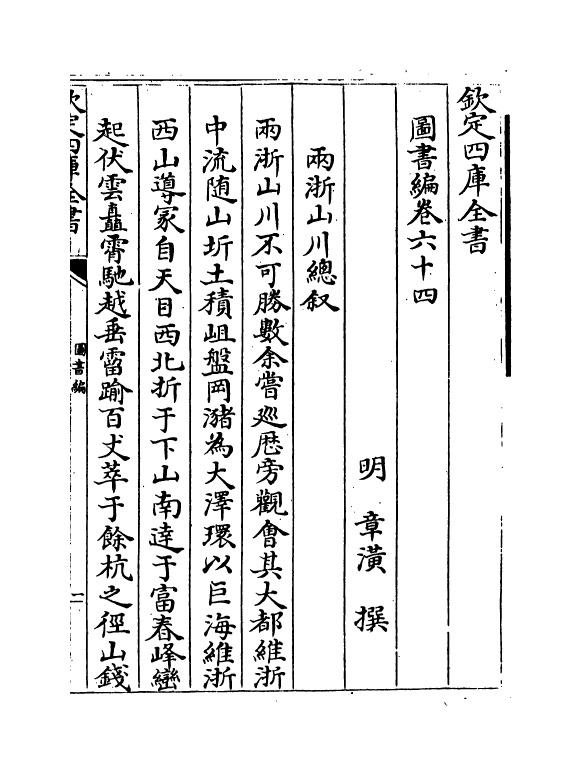 欽定四庫全書
圖書編卷六十四
明 章潢 撰
兩浙山川總叙
兩浙山川不可勝數余嘗巡歴旁觀會其大都維浙
中流随山圻土積岨盤岡瀦為大澤環以巨海維浙
西山導冡自天目西北折于下山南逹于富春峰巒
起伏雲矗霄馳越垂霤踰百丈萃于餘杭之徑山錢
欽定四庫全書
圖書編